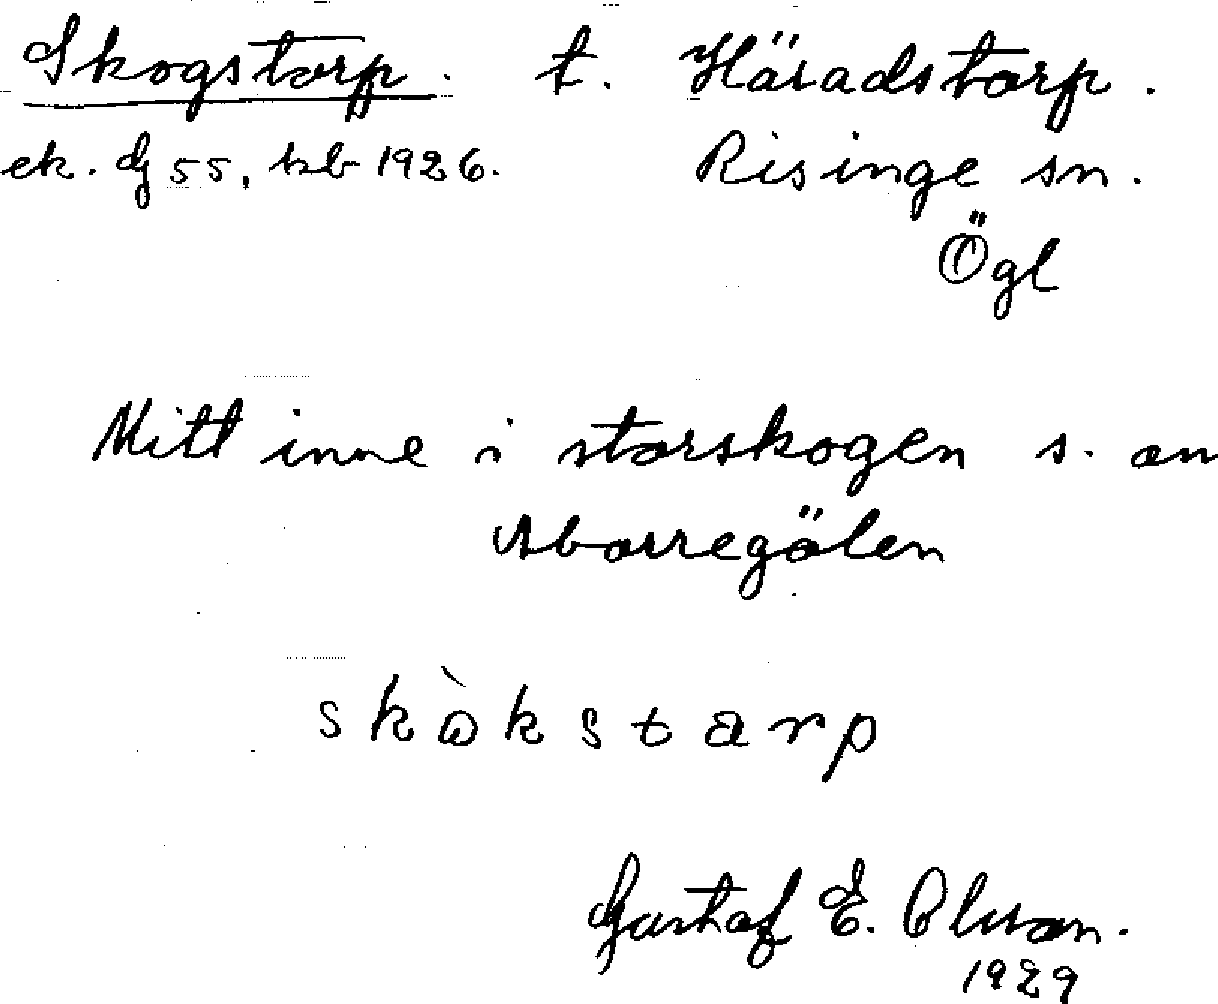 Skogstorp. t. Häradstorp.
ek. dj 55, kb 1926. Risinge sn.
Ögl
Mitt inne i storskogen s. om
Aborregölen
skòkstarp
Gustaf E. Olson.
1929